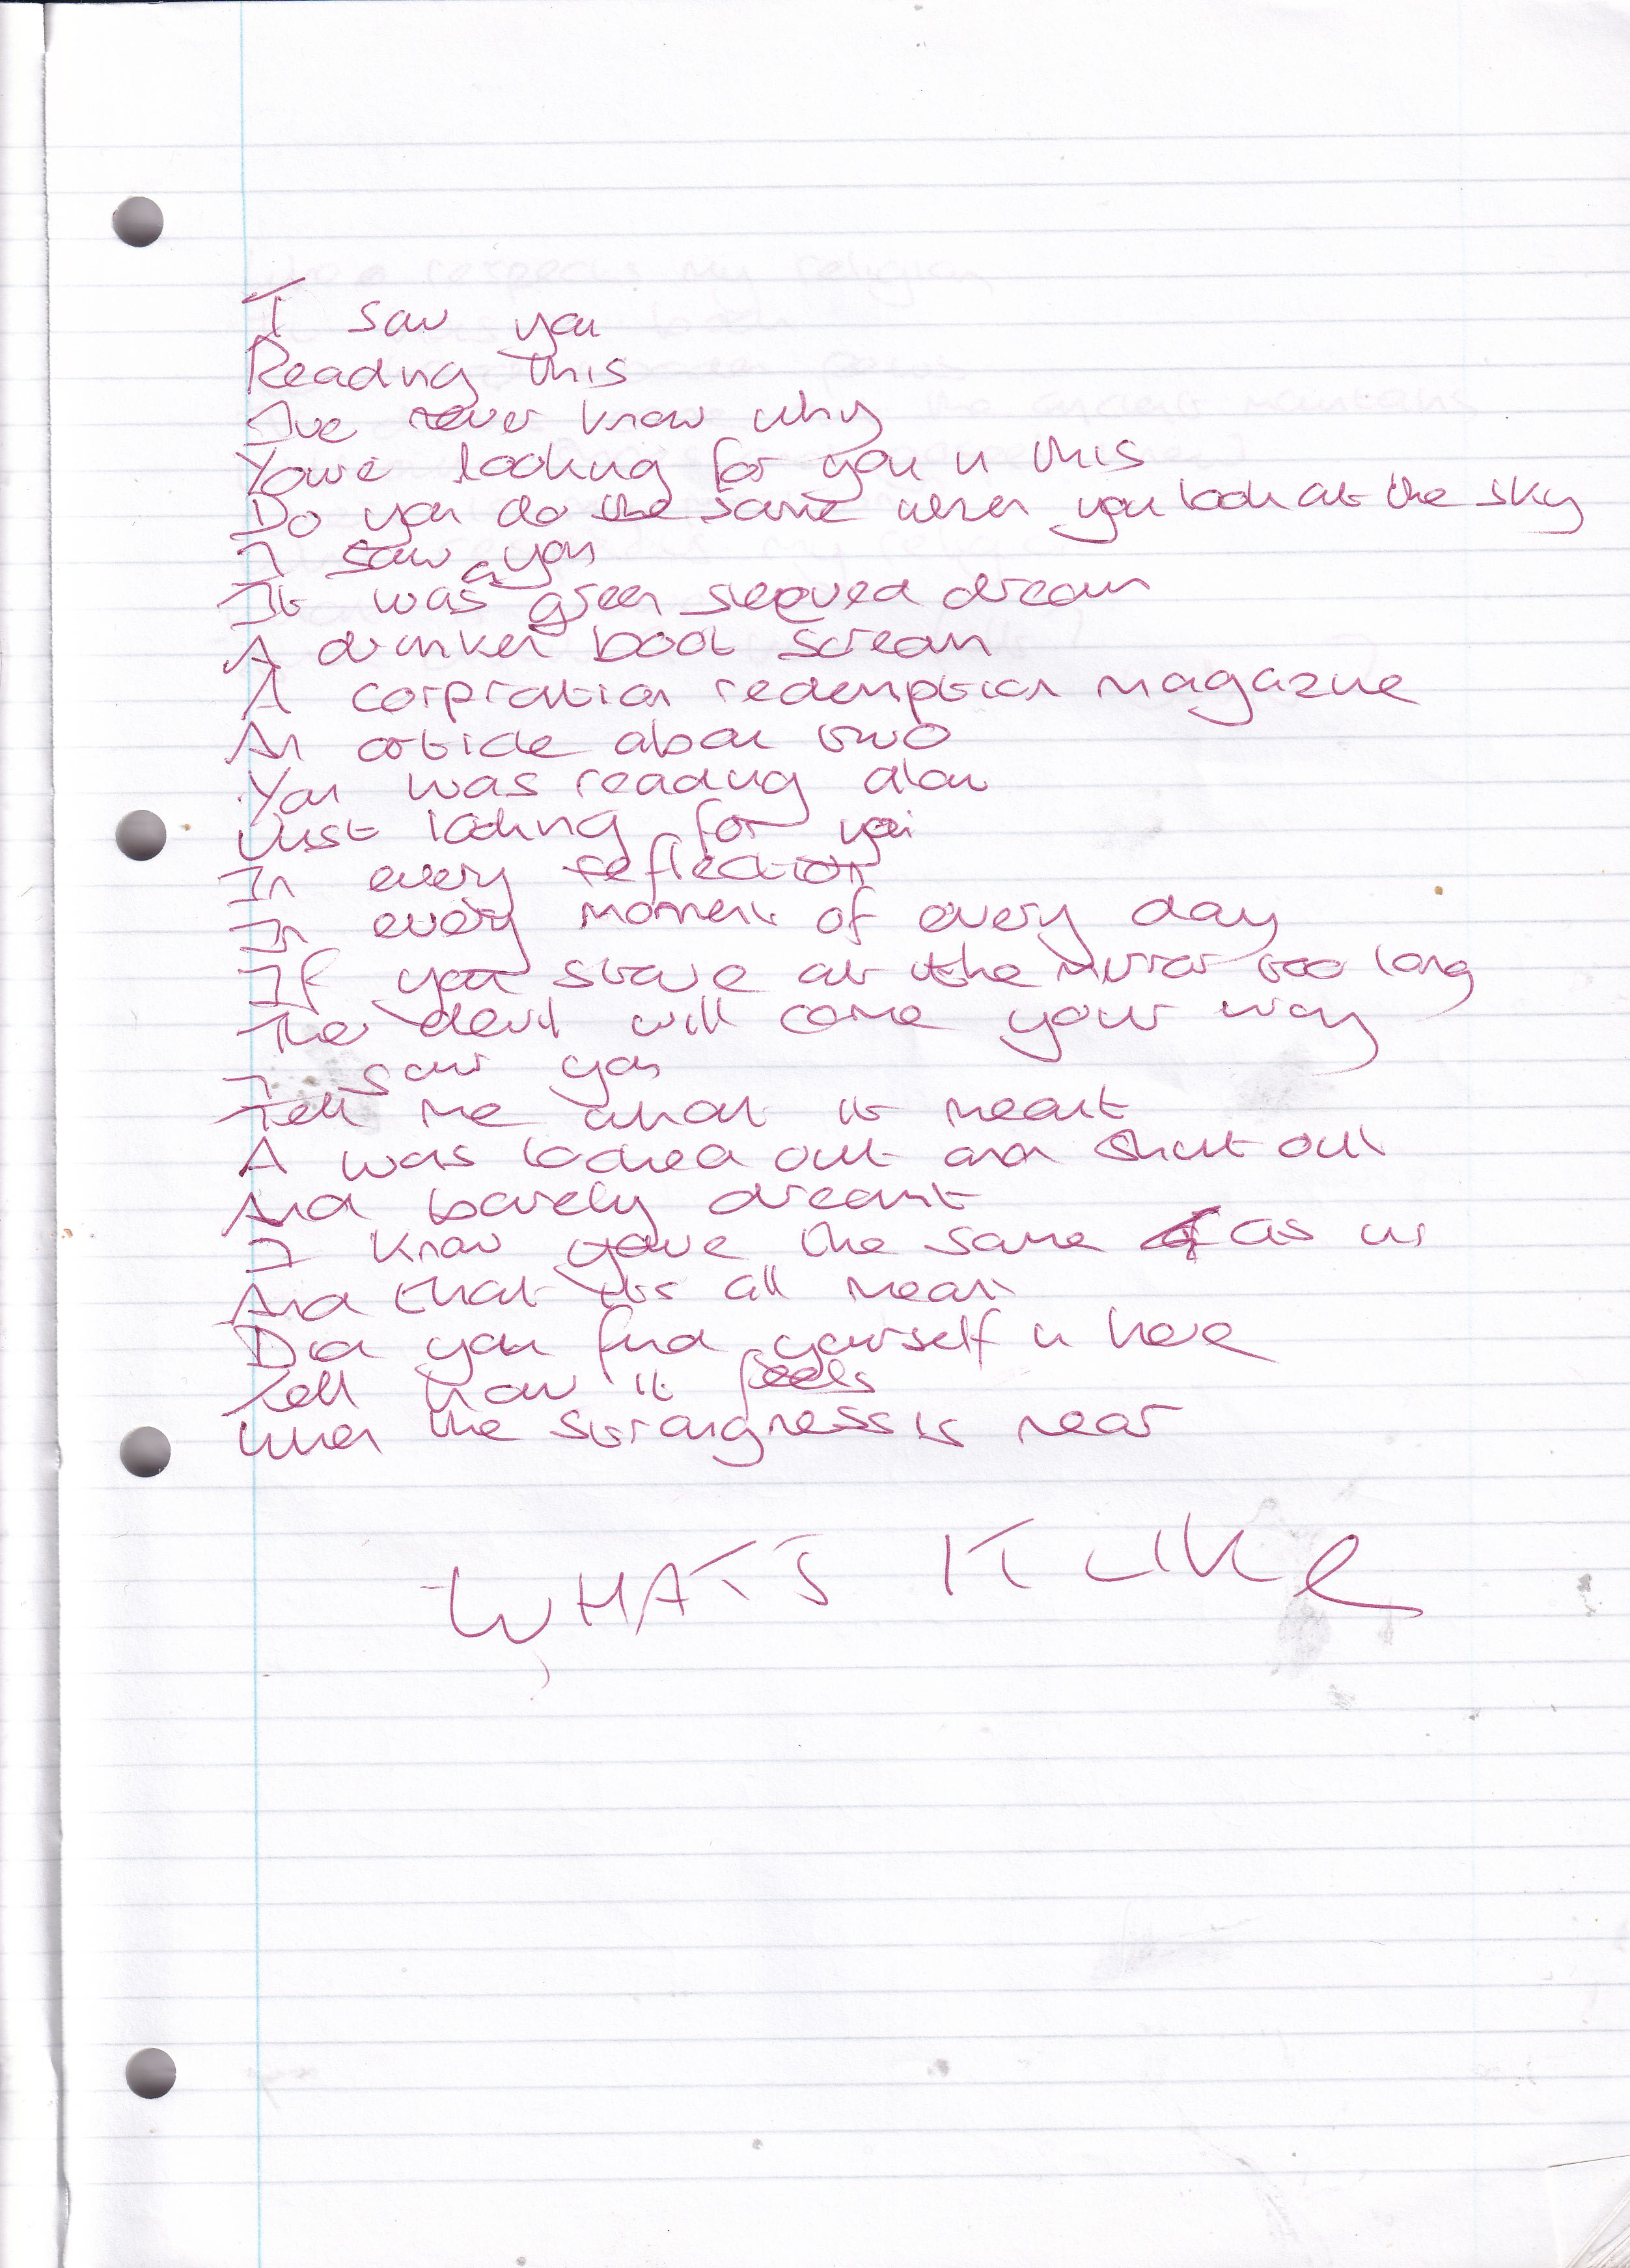 I saw you
Reading this
Ive never know why
Youre looking for you in this
Do you do the same when you look at the sky
I saw you
It was a green sleeved dream
A drunken boat scream
A corpration redemption magazine
An article about two
You was reading alou
Just looking for you
In every reflection
In every moment of every day
If you stare at the mirror too long
The devil will come your way
I saw you
Tell me what it meant
A was locked out and shut out
And barely dreamt
I know youre the same as us
And that its all mean
Did you find yourself in here
Tell how it feels
When the strangness is near
WHATS IT LIKE